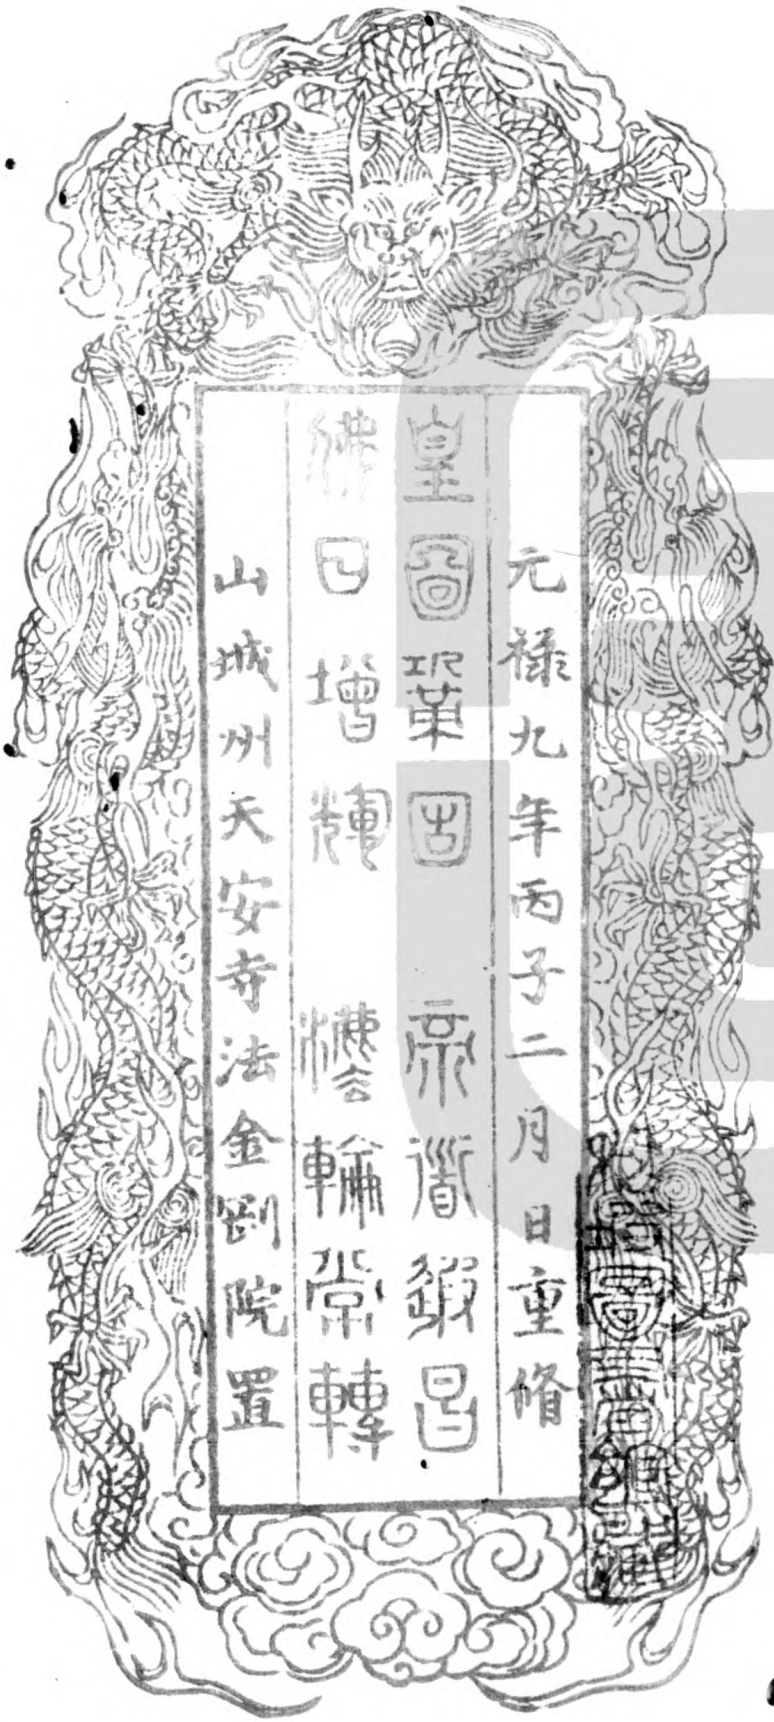 元禄九年丙子二月日重脩
皇圖鞏固 帝道遐昌
佛日增輝 法輪常轉
山城州天安寺法金剛院置
圖書